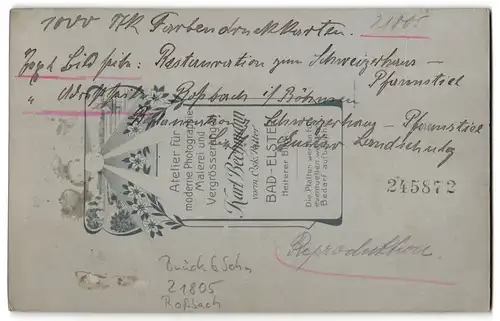 1000 Stk Farbendruckkarten. 21805
Bildseite: Restauration zum Schweizerhaus –
Pfannstiel
" Adresseite: Roßbach i/Böhmen
Restauration Schweizerhaus – Pfannstiel
Gustav
Atelier für
moderne Photographie
Malerei und
Vergrösserungen
Karl Bechmann
vorm.
BAD-ELSTER
Heiterer Blick
Die Platten werden für
eventuellen weiteren
Bedarf aufbewahrt.
245872
Reproduktion.
Brück & Sohn
21805
Roßbach